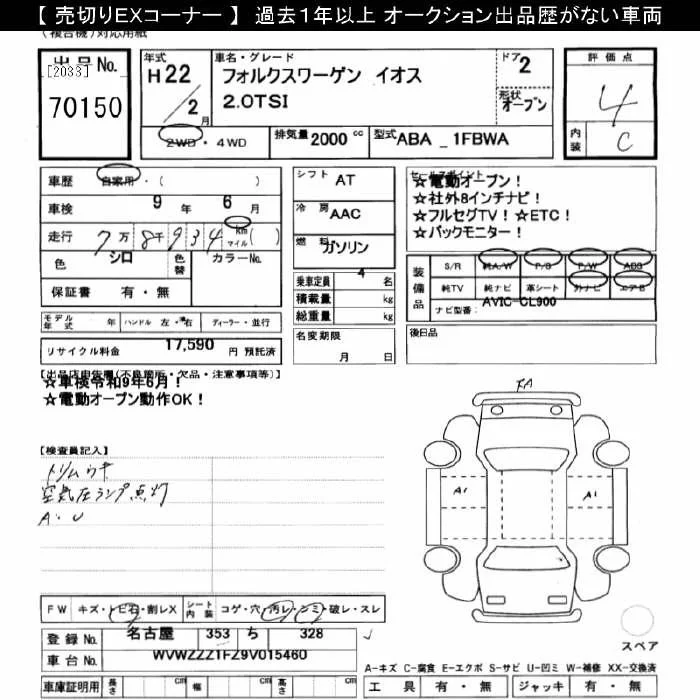 【 売切りEXコーナー 】 過去1年以上 オークション出品歴がない車両
(複合機)対応用紙
出品No.
[2033]
70150
年式
H22
/2月
車名・グレード
フォルクスワーゲン イオス
2.0TSI
ドア 2
形状 オープン
2WD・4WD
排気量 2000 cc
型式 ABA _ 1FBWA
評価点
4
内装 C
車歴 自家用・( )
車検 9年 6月
走行 7万8千934 km マイル( )
色 シロ 色替 カラーNo.
保証書 有・無
シフト AT
冷房 AAC
燃料 ガソリン
乗車定員 4 名
積載量 kg
総重量 kg
セールスポイント
☆電動オープン!
☆社外8インチナビ!
☆フルセグTV!☆ETC!
☆バックモニター!
装備品
S/R 純A/W P/S P/W ABS
純TV 純ナビ 革シート 外ナビ エアB
ナビ型番: AVIC-CL900
モデル年式 年 ハンドル 左・右 ディーラー・並行
リサイクル料金 17,590 円 預託済
名変期限
月 日
後日品
【出品店申告欄(不良箇所・欠品・注意事項等)】
☆車検令和9年6月!
☆電動オープン動作OK!
【検査員記入】
トリムウキ
空気圧ランプ点灯
A・U
FA
A1
A1
FW キズ・トビ石・割レX シート内装 コゲ・穴・汚レ・シミ・破レ・スレ
登録No. 名古屋 353 ち 328
車台No. WVWZZZ1FZ9V015460
車庫証明用 長さ cm 幅 cm 高さ cm
スペア
A-キズ C-腐食 E-エクボ S-サビ U-凹ミ W-補修 XX-交換済
工具 有・無 ジャッキ 有・無